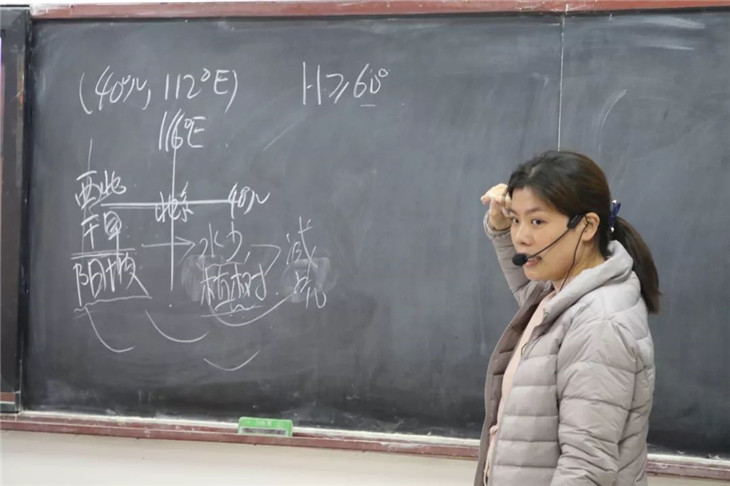 (40°N, 112°E) H≥60°
116°E
西北
北京 40°N
干旱 → 水少 减
阳坡 植树 点